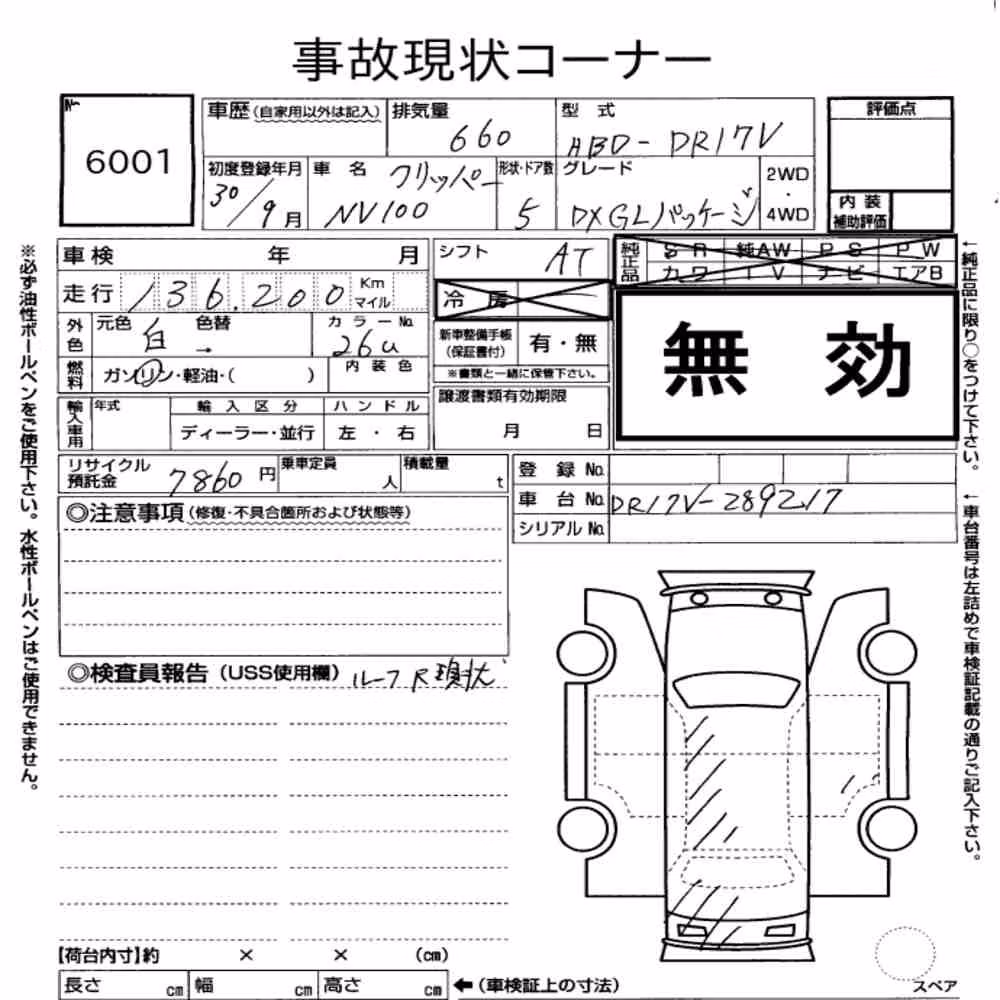 事故現状コーナー
№
6001
車歴(自家用以外は記入)
排気量
660
型式
HBD-DR17V
評価点
初度登録年月
30/9月
車名
フリッパー
NV100
形状・ドア数
5
グレード
DXGLパッケージ
2WD
・
4WD
内装
補助評価
車検 年 月
走行 136,200 Km
マイル
シフト
AT
冷房
純正品
SR 純AW PS PW
カワ TV ナビ エアB
無効
外色
元色 白 色替 →
カラーNo.
26u
燃料
ガソリン・軽油・( )
内装色
新車整備手帳
(保証書付)
有・無
※書類と一緒に保管下さい。
輸入車用
年式
輸入区分
ディーラー・並行
ハンドル
左・右
譲渡書類有効期限
月 日
リサイクル
預託金
7860円
乗車定員
人
積載量
t
登録No.
車台No. DR17V-289217
シリアルNo.
◎注意事項(修復・不具合箇所および状態等)
◎検査員報告(USS使用欄) ルーフ R現状
【荷台内寸】約 × × (cm)
長さ cm 幅 cm 高さ cm ←(車検証上の寸法)
スペア
※必ず油性ボールペンをご使用下さい。水性ボールペンはご使用できません。
←純正品に限り○をつけて下さい。
←車台番号は左詰めで車検証記載の通りご記入下さい。